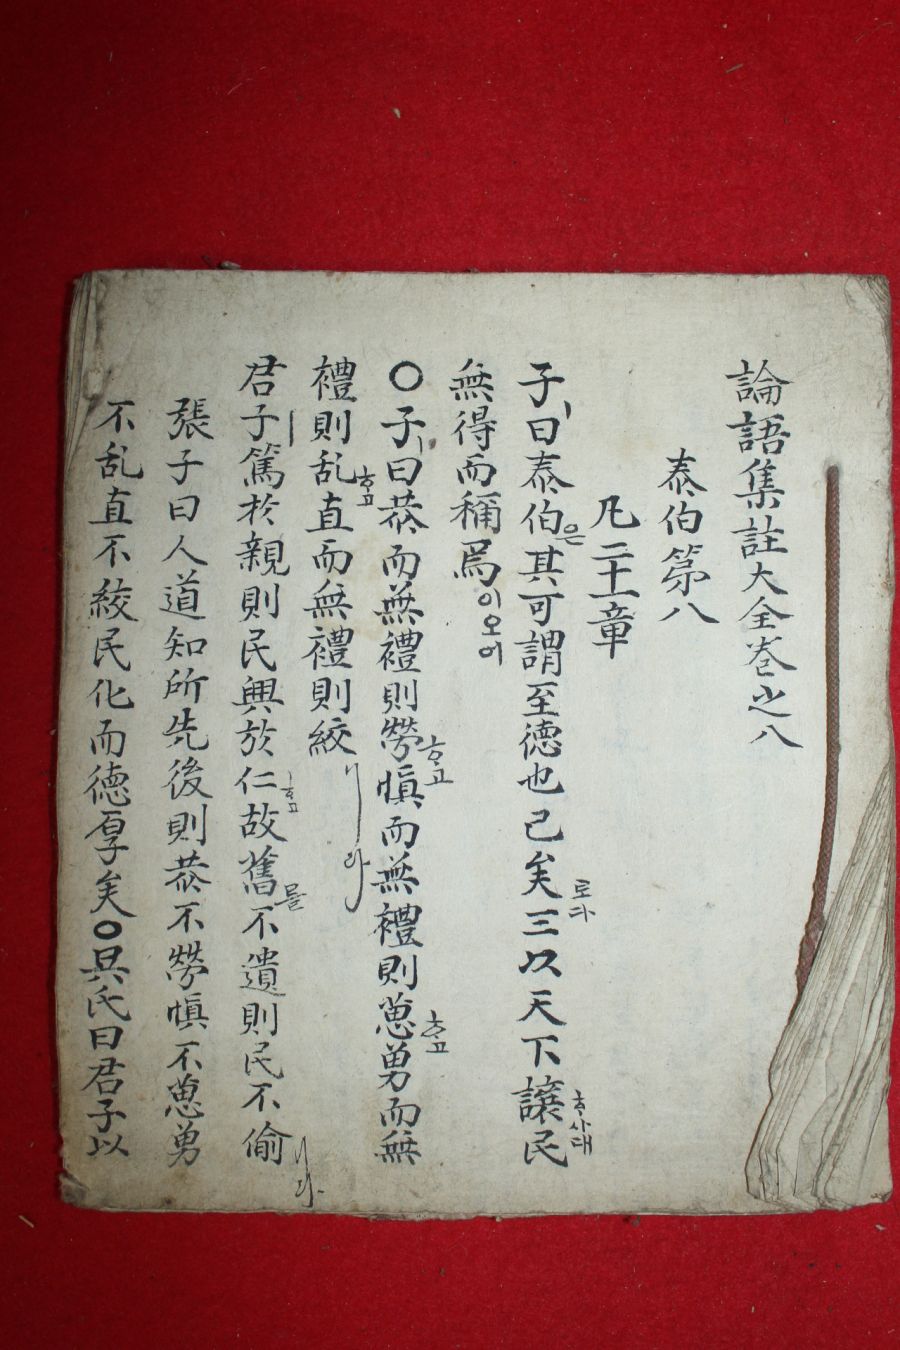 論語集註大全卷之八
泰伯第八
凡二十一章
子ㅣ曰泰伯은其可謂至德也已矣로다三以天下讓ᄒᆞ사대民
無得而稱焉이오여
○子ㅣ曰恭而無禮則勞ᄒᆞ고愼而無禮則葸ᄒᆞ고勇而無
禮則乱ᄒᆞ고直而無禮則絞ㅣ라
君子ㅣ篤於親則民興於仁ᄒᆞ고故舊를不遺則民不偷ㅣ라
張子曰人道知所先後則恭不勞愼不葸勇
不乱直不絞民化而德厚矣○吳氏曰君子以